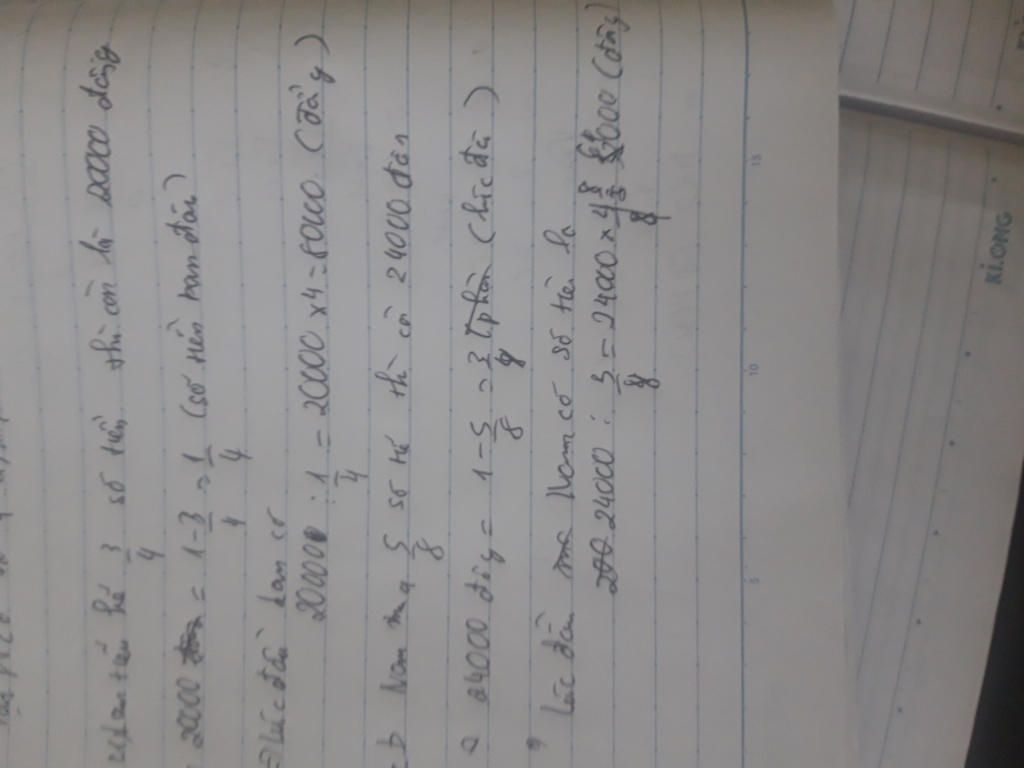 hế 3/4 số tiền thì còn là 20000 đồng
2000 = 1-3/4 = 1/4 (số tiền ban đầu)
=> lúc đầu lan có
20000 : 1/4 = 20000 x 4 = 80000 (đồng)
b Nam mua 5/8 số tề thì cò 24000 đồn
24000 đồng = 1-5/8 = 3/8 (lúc đầ)
lúc đầu Nam có số tiền là
24000 : 3/8 = 24000 x 8/3 64000 (đồng)
KLONG
5
10
15